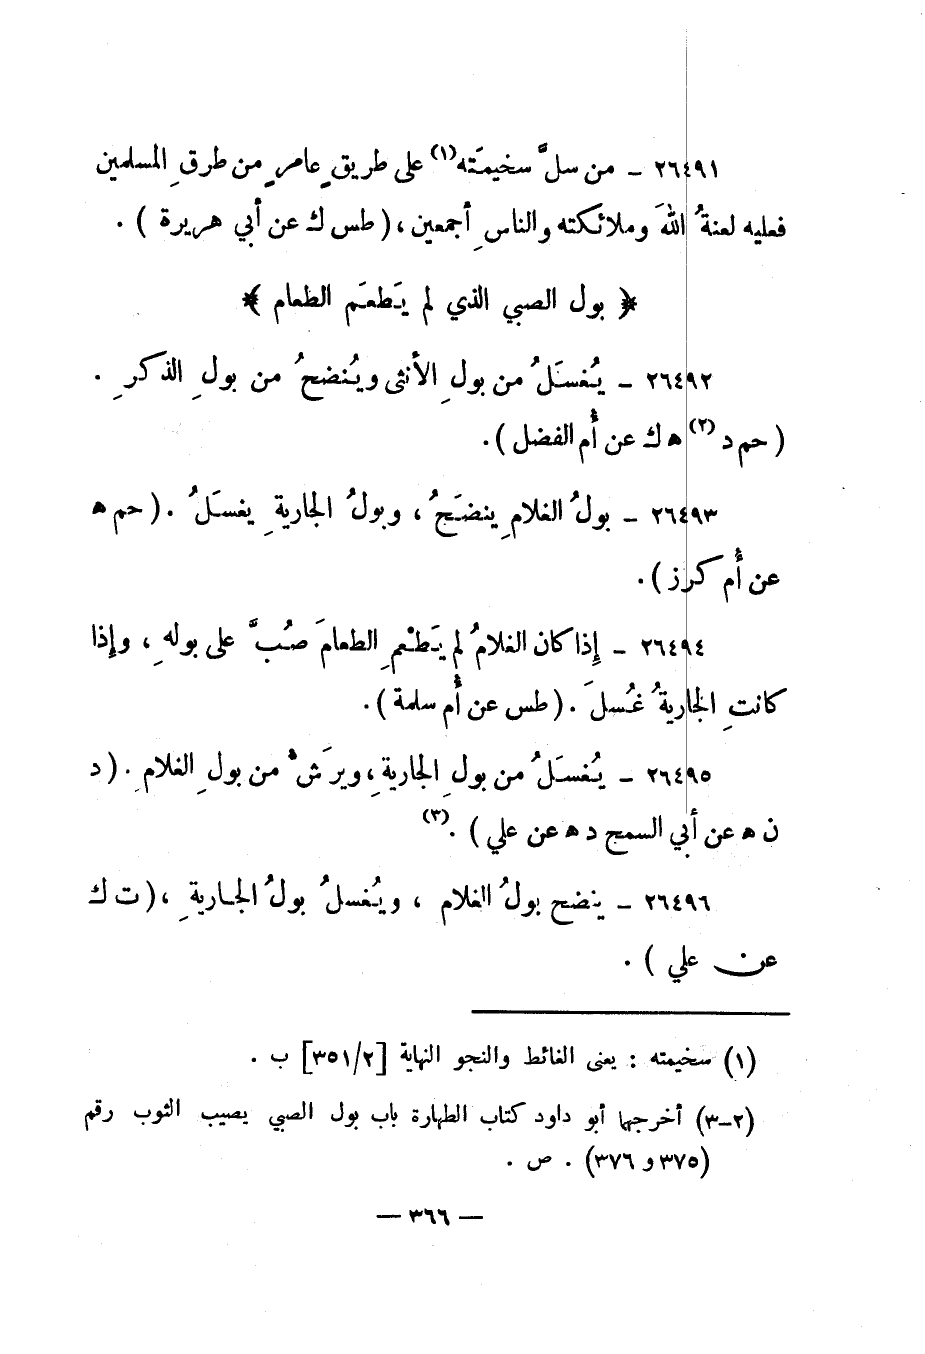 ٢٦٤٩١ - من سلَّ سخيمَته(١) على طريقٍ عامرٍ من طرقِ المسلمين
فعليه لعنةُ اللهَ وملائكته والناسِ أجمعين ، ( طس ك عن أبي هريرة ) .
﴿ بول الصبي الذي لم يَطعَم الطعام ﴾
٢٦٤٩٢ - يُغسَلُ من بولِ الأنثى ويُنضحُ من بولِ الذكرِ .
( حم د(٢) ه ك عن أُم الفضل ) .
٢٦٤٩٣ - بولُ الغلامِ ينضَحُ ، وبولُ الجاريةِ يغسَلُ . ( حم ه
عن أُم كرز ) .
٢٦٤٩٤ - إِذا كان الغلامُ لم يَطْعمِ الطعامَ صُبَّ على بولهِ ، وإِذا
كانتِ الجاريةُ غُسلَ . ( طس عن أُم سلمة ) .
٢٦٤٩٥ - يُغسَلُ من بولِ الجاريةِ ، ويرَشُّ من بولِ الغلامِ . ( د
ن ه عن أبي السمح د ه عن علي ) .(٣)
٢٦٤٩٦ - ينضح بولُ الغلام ، ويُغسلُ بولُ الجاريةِ ، ( ت ك
عن علي ) .
(١) سخيمته : يعنى الغائط والنجو النهاية [٣٥١/٢] ب .
(٢-٣) أخرجها أبو داود كتاب الطهارة باب بول الصبي يصيب الثوب رقم
(٣٧٥ و ٣٧٦) . ص .
— ٣٦٦ —